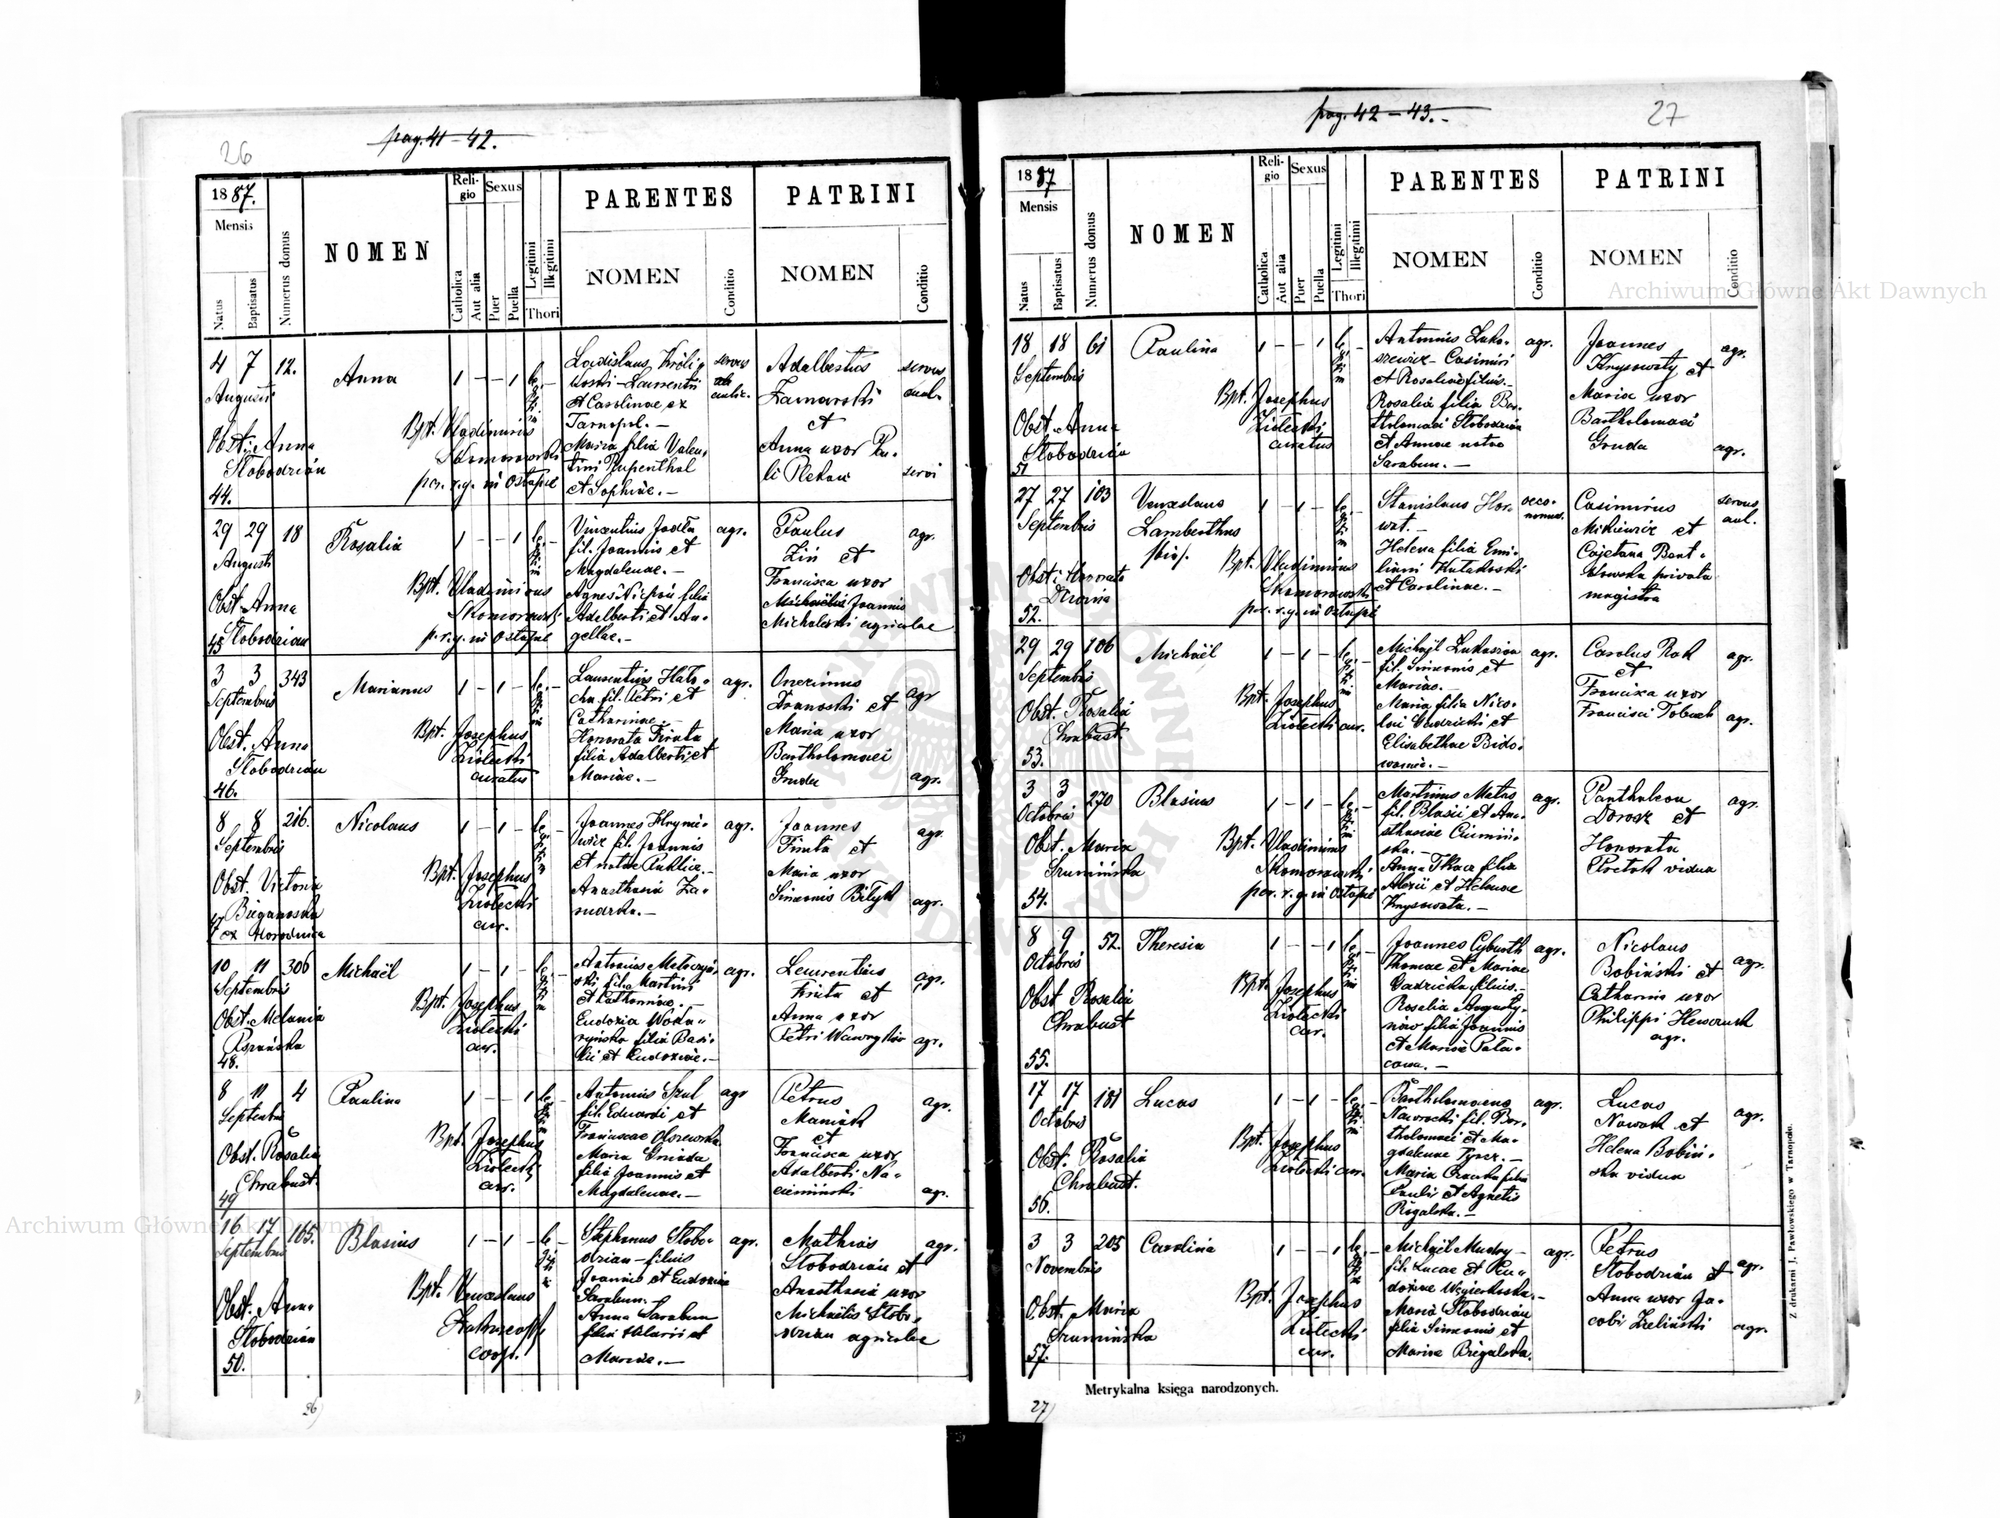 26
pag. 41 – 42.
1887.
Mensis
Natus
Baptisatus
Numerus domus
NOMEN
Religio
Catholica
Aut alia
Sexus
Puer
Puella
Legitimi
Illegitimi
Thori
PARENTES
NOMEN
Conditio
PATRINI
NOMEN
Conditio
4 7 12.
Augusti
Obst. Anna
Slobodzian
44.
Anna
1 – – 1
Bpt. Vladimirus
Skomorowski
par. r. g. in Ostapie
Ladislaus Króli-
kowski – Laurentii
et Carolinae ex
Tarnopol. –
Maria filia Valen-
tini Rupenthal
et Sophiae. –
servus
aulic.
Adalbertus
Zamarski
et
Anna uxor Pa-
li Rekow
servus
aul.
servi
29 29 18
Augusti
Obst. Anna
Slobodzian
45
Rosalia
1 – – 1
Bpt. Vladimirus
Skomorowski
p. r. g. in Ostapie
Vincentius Jadła
fil. Joannis et
Magdalenae. –
Agnes Niepsui filia
Adalberti et An-
gellae. –
agr.
Paulus
Ziń et
Francisca uxor
Joannis
Michalewski agricolae
agr.
3 3 343
Septembris
Obst. Anna
Slobodzian
46.
Marianus
1 – 1 –
Bpt. Josephus
Ziołecki
curatus
Laurentius Hała-
cha fil. Petri et
Catharinae. –
Honorata Finta
filia Adalberti et
Mariae. –
agr.
Onezimus
Iwanoski et
Maria uxor
Bartholomaei
Gruda
agr
agr.
8 8 216.
Septembris
Obst. Victoria
Bieganoska
47 ex Horodnica
Nicolaus
1 – 1 –
Bpt. Josephus
Ziołecki
cur.
Joannes Hrynie-
wicz fil. Joannis
et natae Publica. –
Anasthasia Za-
marska. –
agr.
Joannes
Finta et
Maria uxor
Simeonis Bilyk
agr.
agr.
10 11 306
Septembris
Obst. Melania
48.
Michaël
1 – 1 –
Bpt. Josephus
Ziołecki
cur.
ski filius Martini
et Catharinae. –
Eudoxia Woda-
ryńska filia Basi-
lii et Eudoxiae. –
agr.
Laurentius
Finta et
Anna uxor
Petri Wawryków
agr.
agr.
8 11 4
Septembris
Obst. Rosalia
Chrabust.
49
Paulina
1 – – 1
Bpt. Josephus
Ziołecki
cur.
Antonius Szul
fil. Eduardi et
Franciscae Olszewska
Maria Gniada
filia Joannis et
Magdalenae. –
agr
Petrus
Maniak
et
Francisca uxor
Adalberti Na-
ciemiński
agr.
agr.
16 17 105.
Septembris
Obst. Anna
Slobodzian
50.
Blasius
1 – 1 –
Bpt. Venceslaus
coop.
Stephanus Slobo-
dzian – filius
Joannis et Eudoxiae
Sarabun. –
Anna Sarabun
filia Hilarii et
Mariae. –
agr.
Mathias
Slobodzian et
Anasthasia uxor
Michaëlis Slobo-
dzian agricolae
agr.
26)
pag. 42 – 43. –
27
1887
Mensis
Natus
Baptisatus
Numerus domus
NOMEN
Religio
Catholica
Aut alia
Sexus
Puer
Puella
Legitimi
Illegitimi
Thori
PARENTES
NOMEN
Conditio
PATRINI
NOMEN
Conditio
18 18 61
Septembris
Obst. Anna
Slobodzian
51
Paulina
1 – – 1
Bpt. Josephus
Ziołecki
curatus
Antonius Luka-
szewicz – Casimiri
et Rosaliae filius. –
Rosalia filia Bar-
tholomaei Slobodzian
et Annae natae
Sarabun. –
agr.
Joannes
Knyszwaty et
Maria uxor
Bartholomaei
Gruda
agr.
agr.
27 27 103
Septembris
Obst. Honorata
52.
Venceslaus
Lamberthus
1 – 1 –
Bpt. Vladimirus
Skomorowski
par. r. g. in Ostapie
Stanislaus Hor-
wat. –
Helena filia Emi-
liani Rutkowski
et Carolinae. –
oeco-
nomus.
Casimirus
Mikiewicz et
Cajetana Bent-
kowska privata
magistra
servus
aul.
29 29 106
Septembris
Obst. Rosalia
Chrabust
53.
Michaël
1 – 1 –
Bpt. Josephus
Ziołecki cur.
Michaël Lukasiew
fil. Simeonis et
Mariae. –
Maria filia Nico-
lai Gadzicki et
Elisabethae Bido-
waniec. –
agr.
Carolus Rak
et
Francisca uxor
Francisci Tobiach
agr.
agr.
3 3 270
Octobris
Obst. Maria
Szumińska
54.
Blasius
1 – 1 –
Bpt. Vladimirus
Skomorowski
par. r. g. in Ostapie
Martinus Matas
fil. Blasii et Ana-
sthasiae Ciemiń-
ska. –
Anna Tkacz filia
Alexii et Helenae
Knyszwata. –
agr.
Panthaleon
Dorosz et
Honorata
Protok vidua
agr.
8 9 52.
Octobris
Obst Rosalia
Chrabust
55.
Theresia
1 – – 1
Bpt. Josephus
Ziołecki
cur.
Joannes Cyburth
Thomae et Mariae
Gadzicka filius. –
Rosalia Augusty-
now filia Joannis
et Mariae Pała-
cowa. –
agr.
Nicolaus
Bobiński et
Catharina uxor
Philippi Hewczuk
agr.
agr.
17 17 181
Octobris
Obst. Rosalia
Chrabust.
56.
Lucas
1 – 1 –
Bpt. Josephus
Ziołecki cur.
Bartholomaeus
Nawrocki fil. Bar-
tholomaei et Ma-
gdalenae Tysez. –
Maria Czacka filia
Pauli et Agnetis
Rogalska. –
agr.
Lucas
Nowak et
Helena Bobiń-
ska vidua
agr.
3 3 205
Novembris
Obst. Maria
Szumińska
57.
Carolina
1 – – 1
Bpt. Josephus
Ziołecki
cur.
Michaël Mudry –
fil. Lucae et Eu-
doxiae Węgierkoska. –
Maria Slobodzian
filia Simeonis et
Mariae Biegalska.
agr.
Petrus
Slobodzian et
Anna uxor Ja-
cobi Zieliński
agr.
agr.
Z drukarni J. Pawłowskiego w Tarnopolu.
Metrykalna księga narodzonych.
27)
Archiwum Główne Akt Dawnych
Archiwum Główne Akt Dawnych
ARCHIWUM GŁÓWNE AKT DAWNYCH